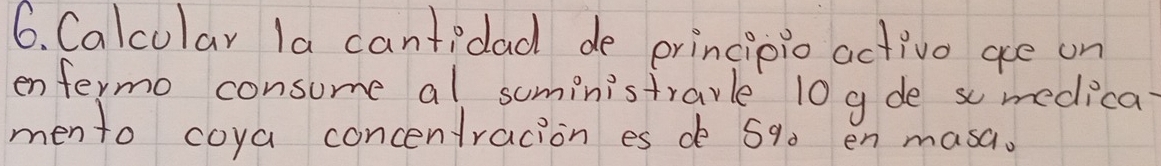 6. Calcular la cantidad de principio activo que un
enfermo consume al suministrarle 10 g de su medica-
mento cuya concentración es de 5% en masa.